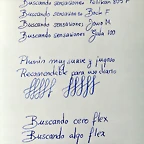 Buscando sensaciones Pelikan 805 F
Buscando sensaciones Bock F
Buscando sensaciones Jowo M
Buscando sensaciones Gala 100
Plumín muy suave y jugoso
Recomendable para uso diario
Buscando cero flex
Buscando algo flex